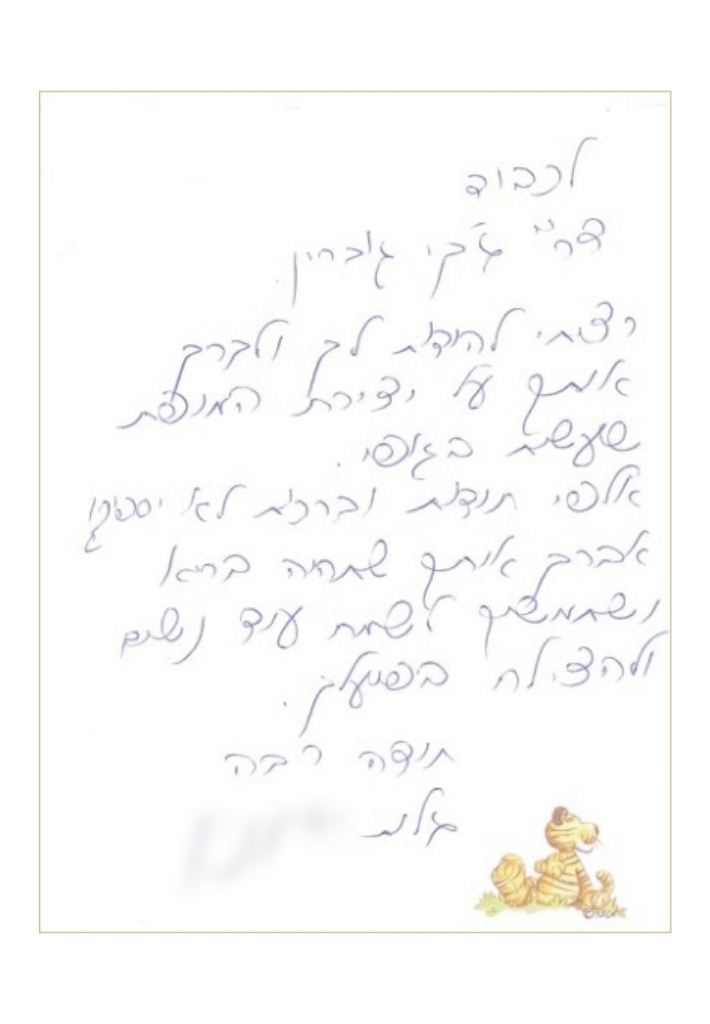 לכבוד
דר' ג'קי גוברין.
רציתי להודות לך ולברך
אותך על יצירת המופת
שעשית בגופי.
אלפי תודות וברכות לא יספיקו
אברך אותך שתהיה בריא
ושתמשיך לשמח עוד נשים
ולהצליח בפועלך.
תודה רבה
גלית